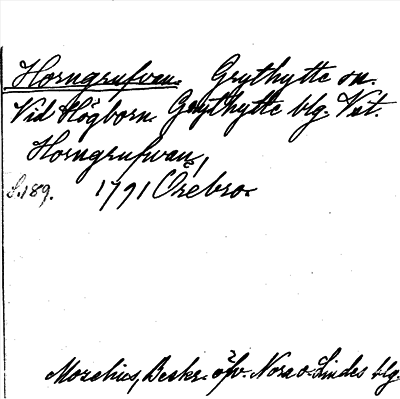 Horngrufvan. Grythytte sn.
Vid Högborn. Grythytte blg. Vst.
Horngrufvan,
S. 189. 1791 Örebro.
Morelius, Beskr. öfv. Nora o. Lindes blg.